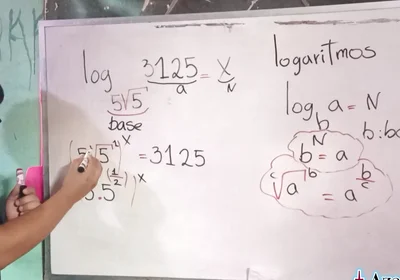 log 5√5 3125 = x
a N
base
(5√5)ˣ = 3125
5.5^(1/2))ˣ
logaritmos
log_b a = N
b: ba
bᴺ = a
ᶜ√aᵇ = a^(b/c)